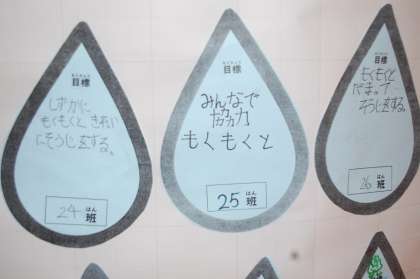 もくひょう
目標
しずかに
もくもくと きれい
にそうじをする。
24 はん
班
もくひょう
目標
みんなで
協力
もくもくと
25 はん
班
もくひょう
目標
もくもくと
だまって
そうじをする。
26 はん
班